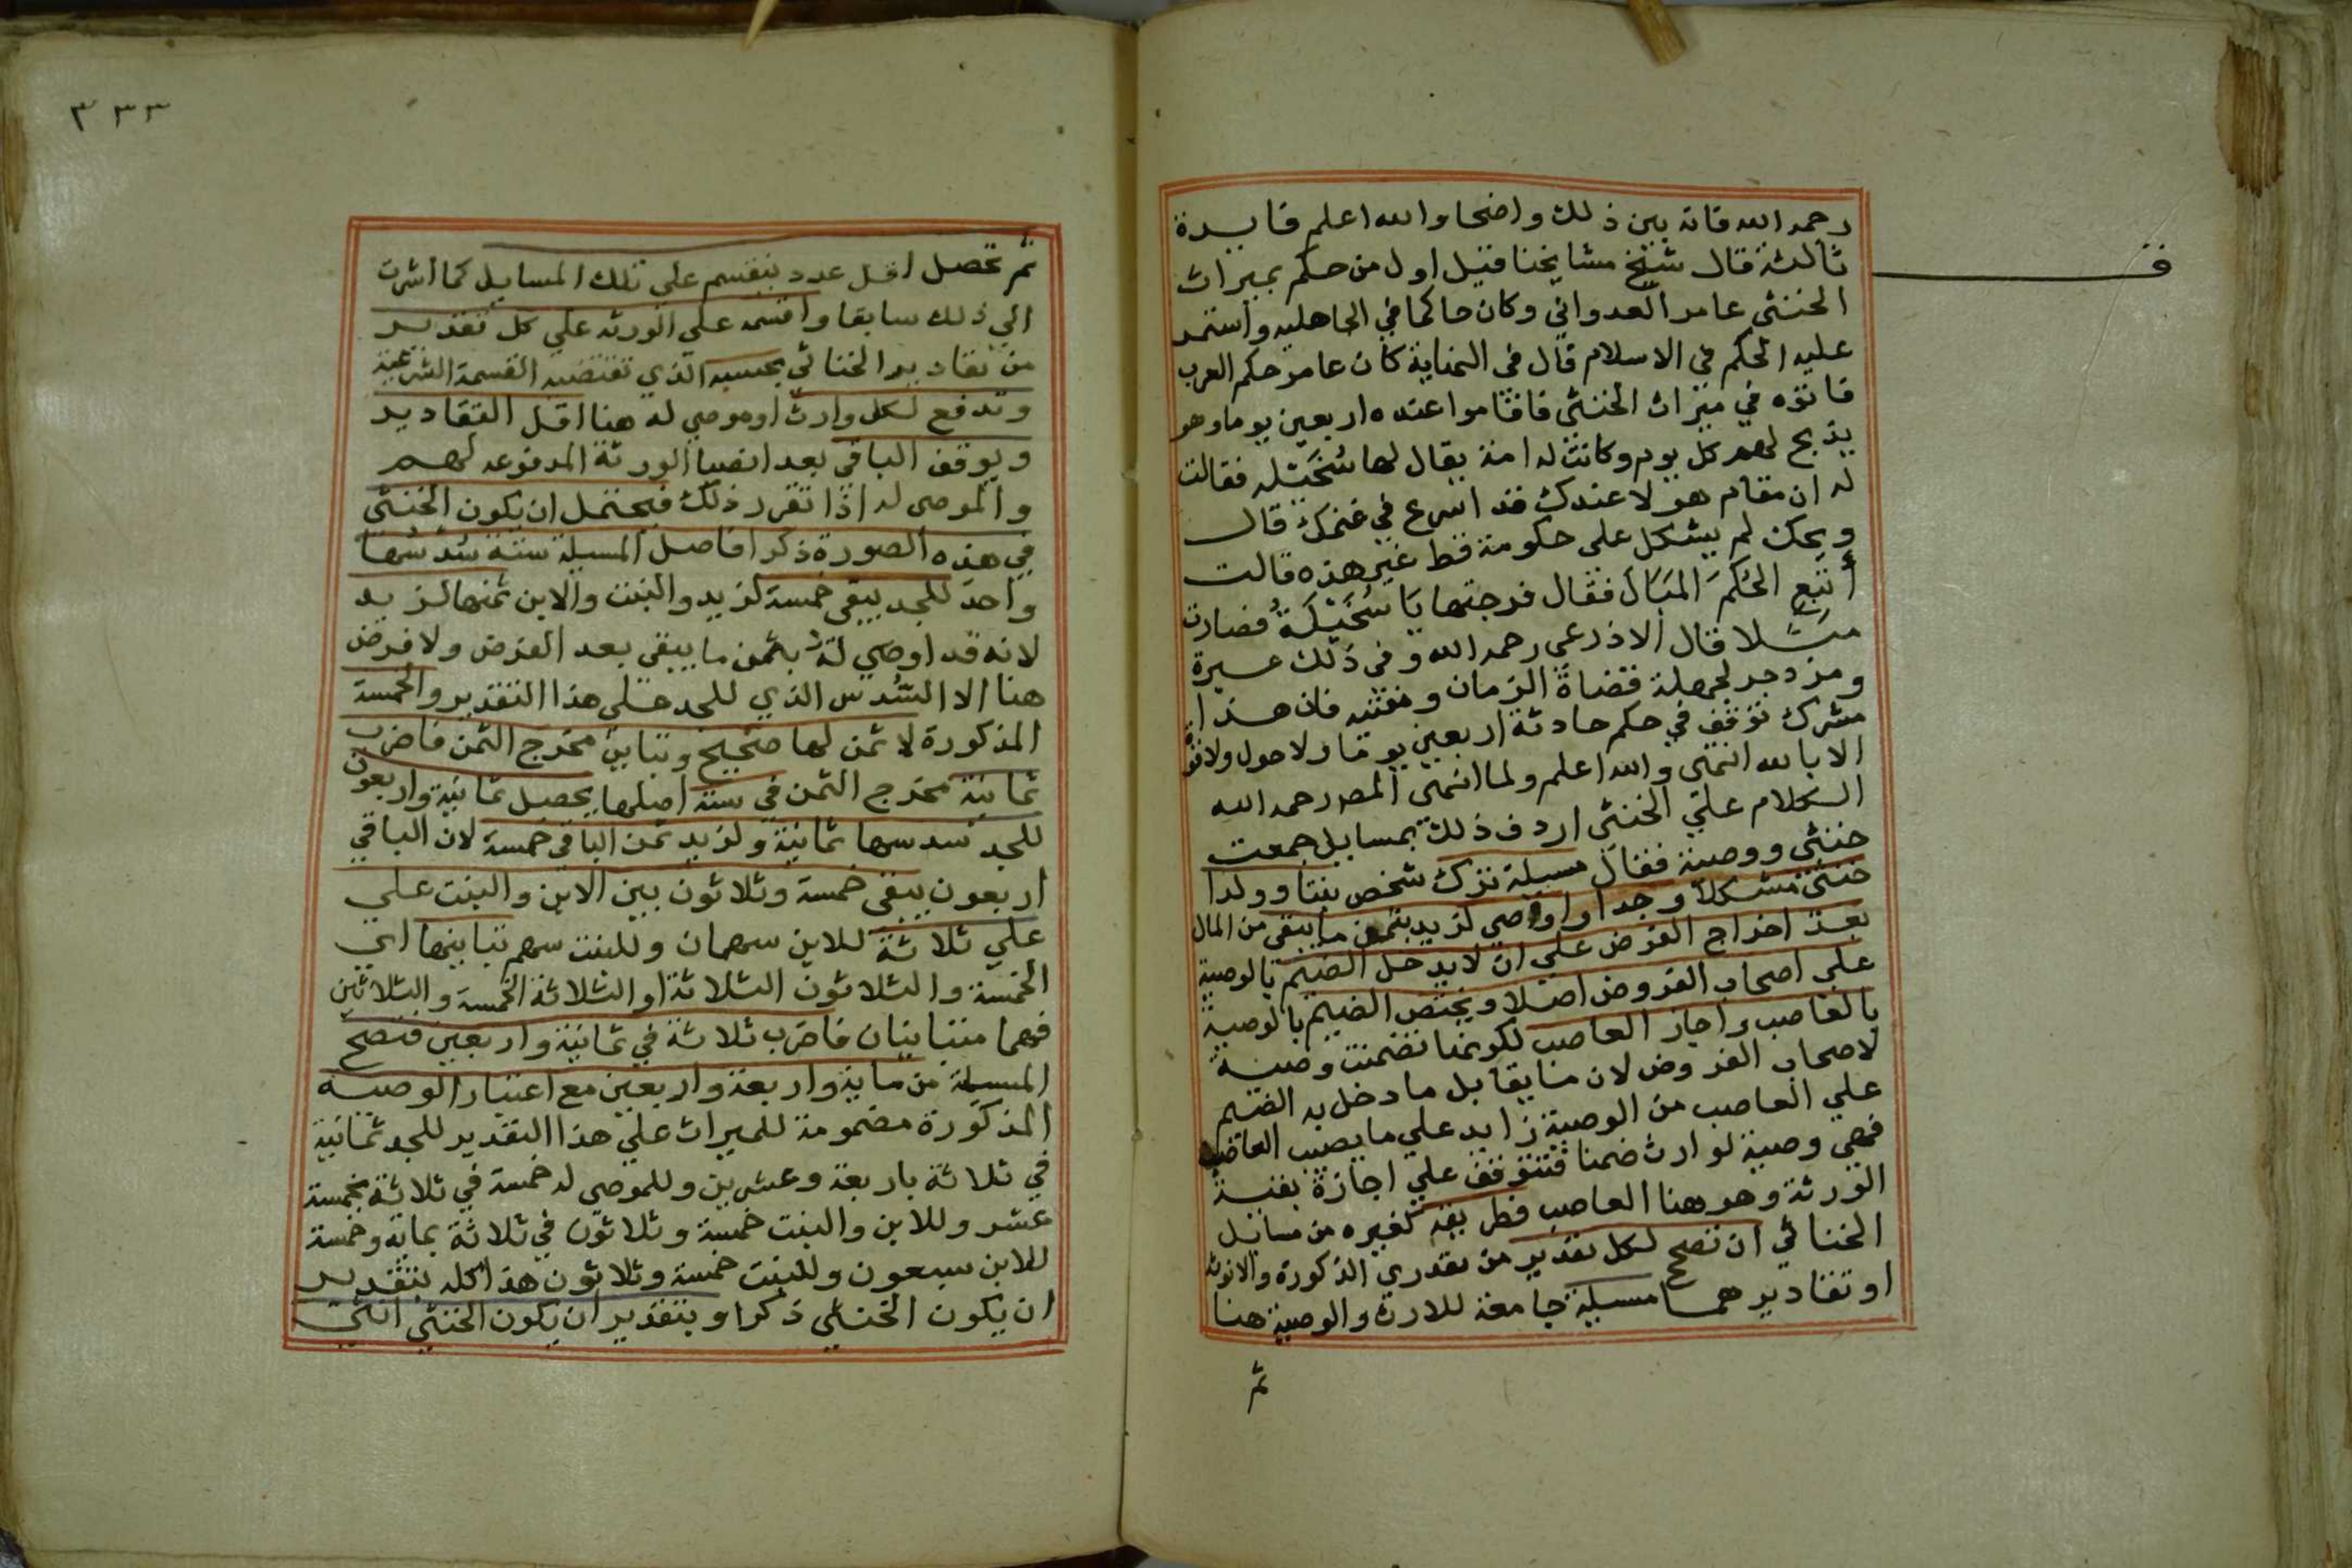 رحمه الله فانه بين ذلك واضحا والله اعلم فايدة
ثالثة قال شيخ مشايخنا قيل اول من حكم بميراث
ف
الخنثى عامر العدواني وكان حاكما في الجاهليه واستمر
عليه الحكم في الاسلام قال في النهاية كان عامر حكم العرب
فاتوه في ميراث الخنثى فاقاموا عنده اربعين يوما وهو
يذبح لهم كل يوم وكانت له امة يقال لها سُخَيْله فقالت
له ان مقام هولا عندك قد اسرع في غنمك قال
ويحك لم يشكل على حكومة قط غير هذه قالت
أتبع الحُكمَ المَبَالَ فقال فرجتها يَا سُخَيْلَةُ فصارت
مثلا قال الاذرعي رحمه الله وفي ذلك عبرة
ومزدجر لجهلة قضاة الزمان ومفتيه فان هذا
مشرك توقف في حكم حادثة اربعين يوما ولا حول ولا قوة
الا بالله انتهى والله اعلم ولما انهى المصـ رحمه الله
الكلام علي الخنثى اردف ذلك بمسايل جمعت
خنثي ووصية فقال مسيلة ترك شخص بنتا وولدا
خنثى مشكلا وجدا واوصي لزيد بثمن ما يبقى من المال
بعد اخراج الفرض على ان لا يدخل الضيم بالوصية
على اصحاب الفروض اصلا ويختص الضيم بالوصية
بالعاصب واجاز العاصب لكونها تضمنت وصية
لاصحاب الفروض لان ما يقابل ما دخل به الضيم
علي العاصب من الوصية زايد علي ما يصيب العاصب
فهي وصية لوارث ضمنا فتتوقف علي اجازة بقية
الورثة وهو هنا العاصب فطريقه كغيره من مسايل
الخناثي ان تصحح لكل تقدير من تقدري الذكورة والانوثة
او تقاديرهما مسيلة جامعة للارث والوصية هنا
ثم
٣٣٣
ثم تحصل اقل عدد ينقسم على تلك المسايل كما اشرت
الي ذلك سابقا واقسمه على الورثه علي كل تقدير
من تقادير الخناثي بحسبه الذي تقتضيه القسمة الشرعية
وتدفع لكل وارث او موصي له هنا اقل التقادير
ويوقف الباقي بعد انصبا الورثة المدفوعه لهم
والموصى له اذا تقرر ذلك فيحتمل ان يكون الخنثي
في هذه الصورة ذكرا فاصل المسيلة ستة سُدُسُها
واحد للجد يبقى خمسة لزيد والبنت والابن ثمنها لزيد
لانه قد اوصي له بثمن ما يبقى بعد الفرض ولا فرض
هنا الا السُّدس الذي للجد على هذا التقدير والخمسة
المذكورة لا ثمن لها صحيح وتباين مخرج الثمن فاضرب
ثمانية مخرج الثمن في ستة اصلها يحصل ثمانية واربعون
للجد سدسها ثمانية ولزيد ثمن الباقي خمسة لان الباقي
اربعون يبقى خمسة وثلاثون بين الابن والبنت علي
علي ثلاثة للابن سهمان وللبنت سهم تباينها اي
الخمسة والثلاثون الثلاثة او الثلاثة الخمسة والثلاثين
فهما متباينان فاضرب ثلاثة في ثمانية واربعين فتصح
المسيلة من ماية واربعة واربعين مع اعتبار الوصية
المذكورة مضمومة للميراث علي هذا التقدير للجد ثمانية
في ثلاثة باربعة وعشرين وللموصي له خمسة في ثلاثة بخمسة
عشر وللابن والبنت خمسة وثلاثون في ثلاثة بماية وخمسة
للابن سبعون وللبنت خمسة وثلاثون هذا كله بتقدير
ان يكون الخنثي ذكرا وبتقدير ان يكون الخنثي انثي